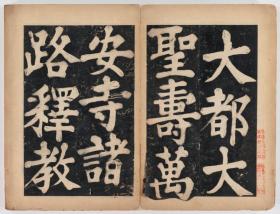 大都大
聖壽萬
安寺諸
路釋教